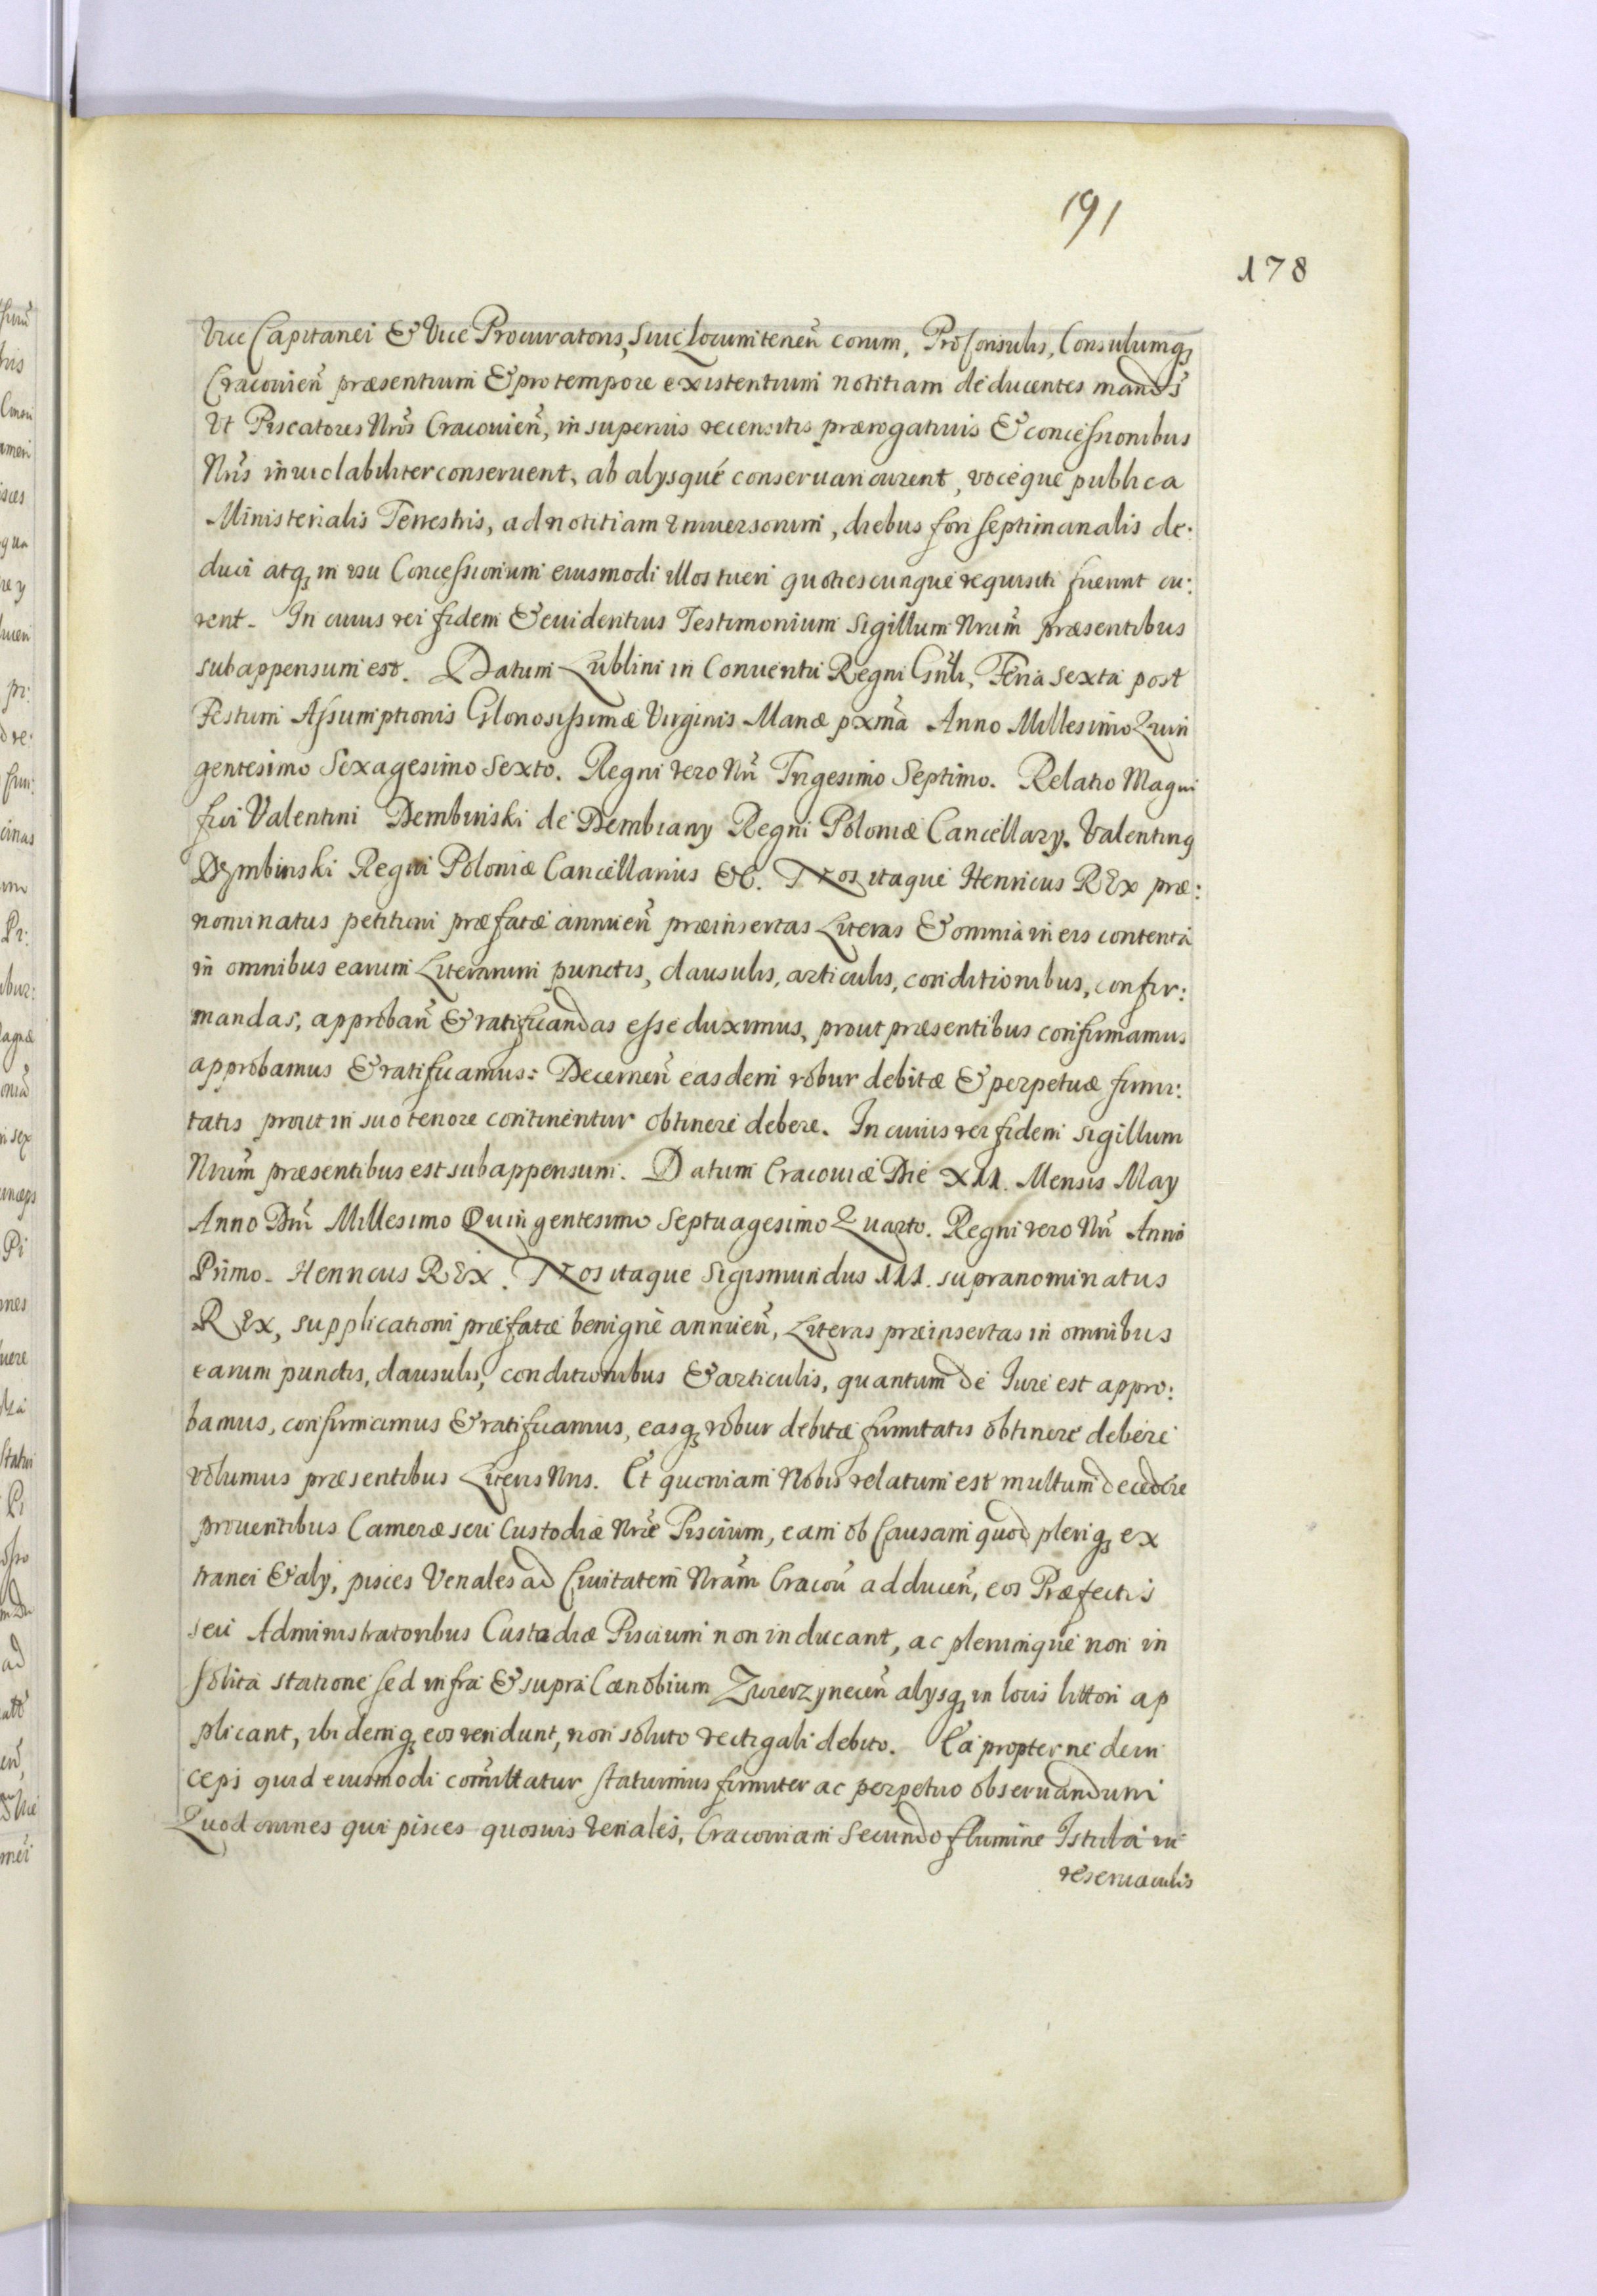 191
178
Vice Capitanei & Vice Procuratoris, siue Locumteneñ eorum, ProConsulis, Consulumqȝ
Cracouieñ præsentium & pro tempore existentium notitiam deducentes mandãs
Ut Piscatores Nrõs Cracouieñ, in superius recensitis prærogatiuis & concessionibus
Nrĩs inuiolabiliter conseruent, ab alysque conseruari curent, voceque publica
Ministerialis Terrestris, ad notitiam Vniuersorum, diebus fori septimanalis de:
duci atqȝ in usu Concessionum eiusmodi illos tueri quotiescunque requisiti fuerint cu:
rent. In cuius rei fidem & euidentius Testimonium Sigillum Nrum̃ præsentibus
subappensum est. Datum Lublini in Conuentu Regni Gñli, Feria sexta post
Festum Assumptionis Gloriosissimæ Virginis Mariæ pxmã Anno Millesimo Quin
gentesimo Sexagesimo Sexto. Regni vero Nrĩ Trigesimo Septimo. Relatio Magni
fici Valentini Dembinski de Dembiany Regni Poloniæ Cancellary. Valentinꝰ
Dembinski Regni Poloniæ Cancellarius &c. Nos itaque Henricus REx præ:
nominatus petitioni præfatæ annueñ præinsertas Literas & omnia in eis contenta
in omnibus earum Literarum punctis, clausulis, articulis, conditionibus, confir:
mandas, approbañ & ratificandas esse duximus, prout præsentibus confirmamus
approbamus & ratificamus: Decerneñ easdem robur debitæ & perpetuæ firmi:
tatis prout in suo tenore continentur obtinere debere. In cuius rei fidem sigillum
Nrum̃ præsentibus est subappensum. Datum Cracouiæ Die XII. Mensis May
Anno Dñi Millesimo Quingentesimo Septuagesimo Quarto. Regni vero Nrĩ Anno
Primo. Henricus REx. Nos itaque Sigismundus III. supranominatus
REx, supplicationi præfatæ benigne annueñ, Literas præinsertas in omnibus
earum punctis, clausulis, conditionibus & articulis, quantum de Iure est appro:
bamus, confirmamus & ratificamus, easqȝ robur debitæ firmitatis obtinere debere
volumus præsentibus Literis Nris. Et quoniam Nobis relatum est multum decedere
prouentibus Cameræ seu Custodiæ Nræ̃ Piscium, eam ob Causam quod pleriqȝ ex
tranei & aly, pisces Venales ad Ciuitatem Nram̃ Cracoũ adduceñ, eos Præfectis
seu Administratoribus Custodiæ Piscium non inducant, ac plerunque non in
solita statione sed infra & supra Cænobium Zwierzyneceñ alysqȝ in locis littori ap
plicant, ibidemqȝ eos vendunt, non soluto vectigali debito. Ea propter ne dein
ceps quid eiusmodi com̃ittatur statuimus firmiter ac perpetuo obseruandum
Quod omnes qui pisces quosuis Venales, Cracouiam Secundo flumine Istula in
reseruaculis